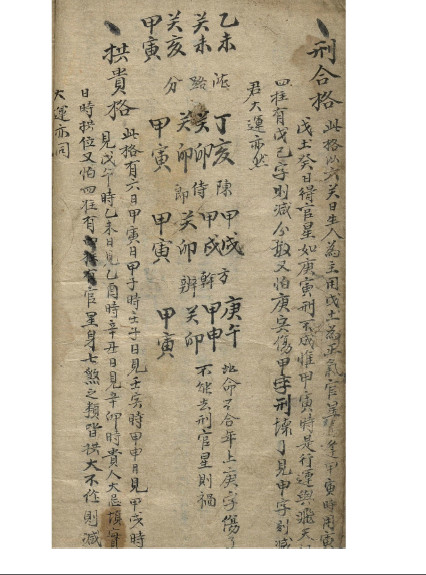 刑合格
此格以六癸日生人為主用戊土為正氣官星喜逢甲寅時用寅
戊土癸日得官星如庚寅刑不成惟甲寅時是行運與飛天
四柱有戊己字則減分數又怕庚寅傷甲字刑壞了見申字則減
君大運亦然
乙未 癸未 癸亥 甲寅
路分
丁亥 癸卯 癸卯 甲寅
陳侍郎
甲戌 甲戌 癸卯 甲寅
方幹辦
庚午 甲申 癸卯 甲寅
此命不合年上庚字傷了
不能去刑官星則禍
拱貴格
此格有六日甲寅日甲子時壬子日見壬寅時甲申日見甲戌時
見戊午時乙未日見乙酉時辛丑日見辛卯時貴人大忌填實
日時拱位又怕四柱有有官星身七煞之類皆拱大不住則減
大運亦同